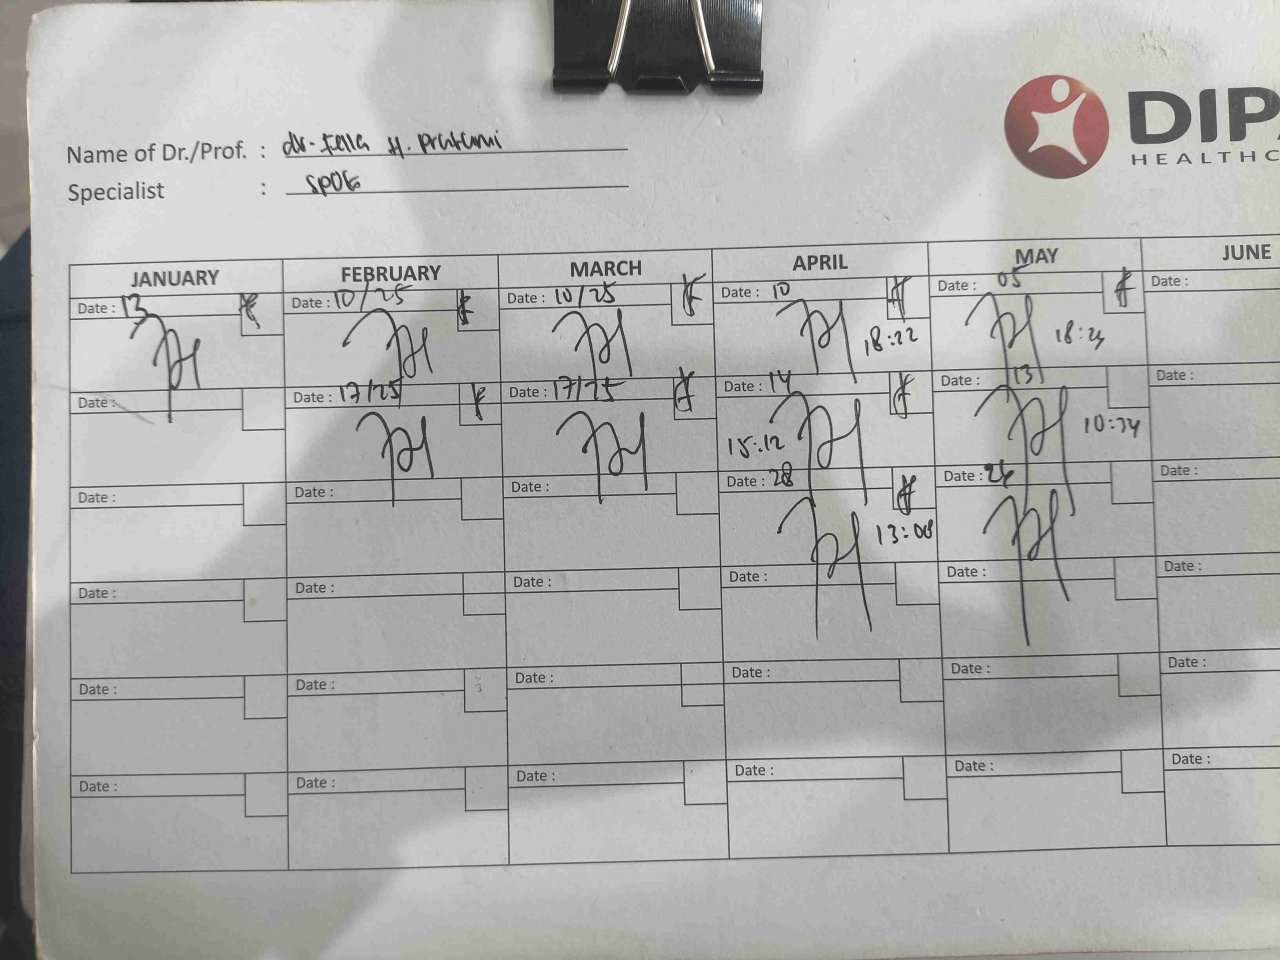 DIP
HEALTHC
Name of Dr./Prof. : dr. Fella H. Pratami
Specialist : SPOG
JANUARY FEBRUARY MARCH APRIL MAY JUNE
Date : 13 Date : 10/25 Date : 10/25 Date : 10 Date : 05 Date :
18:22 18:24
Date : Date : 17/25 Date : 17/25 Date : 14 Date : 13 Date :
15:12 10:34
Date : Date : Date : Date : 28 Date : 26 Date :
13:08
Date : Date : Date : Date : Date : Date :
Date : Date : Date : Date : Date : Date :
Date : Date : Date : Date : Date : Date :